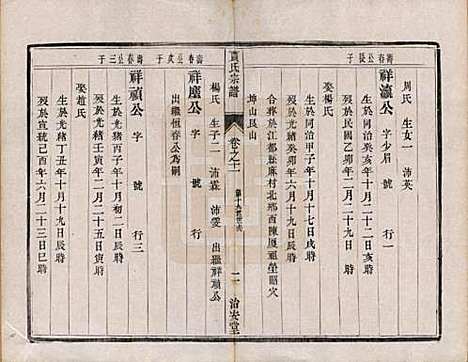 壽春公長子
周氏 生女一 沛英
祥瀛公 字少眉 號 行一
生於同治 年十月二十二日亥時
歿於民國乙卯年二月二十九日 時
娶楊氏
生於同治甲子年十月十七日戌時
歿於光緒癸卯年十一月十九日辰時
合葬於江都 麻村北 西陳 祖塋 穴
坤山艮山
治安堂
二
卷之十一
宗譜
壽春公次子
楊氏 生子二 沛霖 沛雯 出繼祥禎公
祥麈公 字 號 行
出繼恒春公為嗣
壽春公三子
祥禎公 字 號 行三
生於光緒丙子年十月初二日辰時
歿於光緒壬寅年二月二十五日寅時
娶趙氏
生於光緒丁丑年十月十九日辰時
歿於宣統己酉年六月二十三日亥時